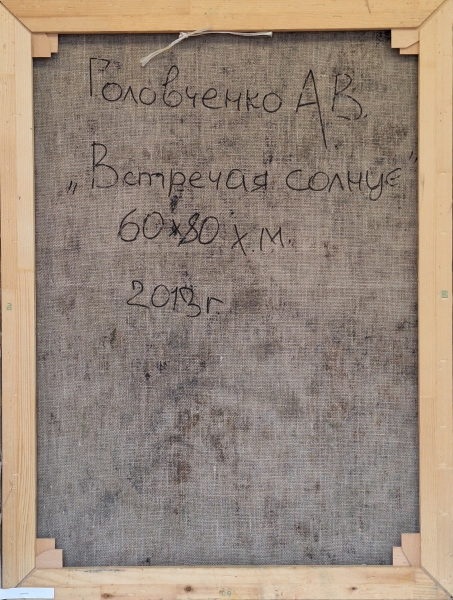 Головченко А.В.
„Встречая солнце"
60×80 х.м.
2013г.